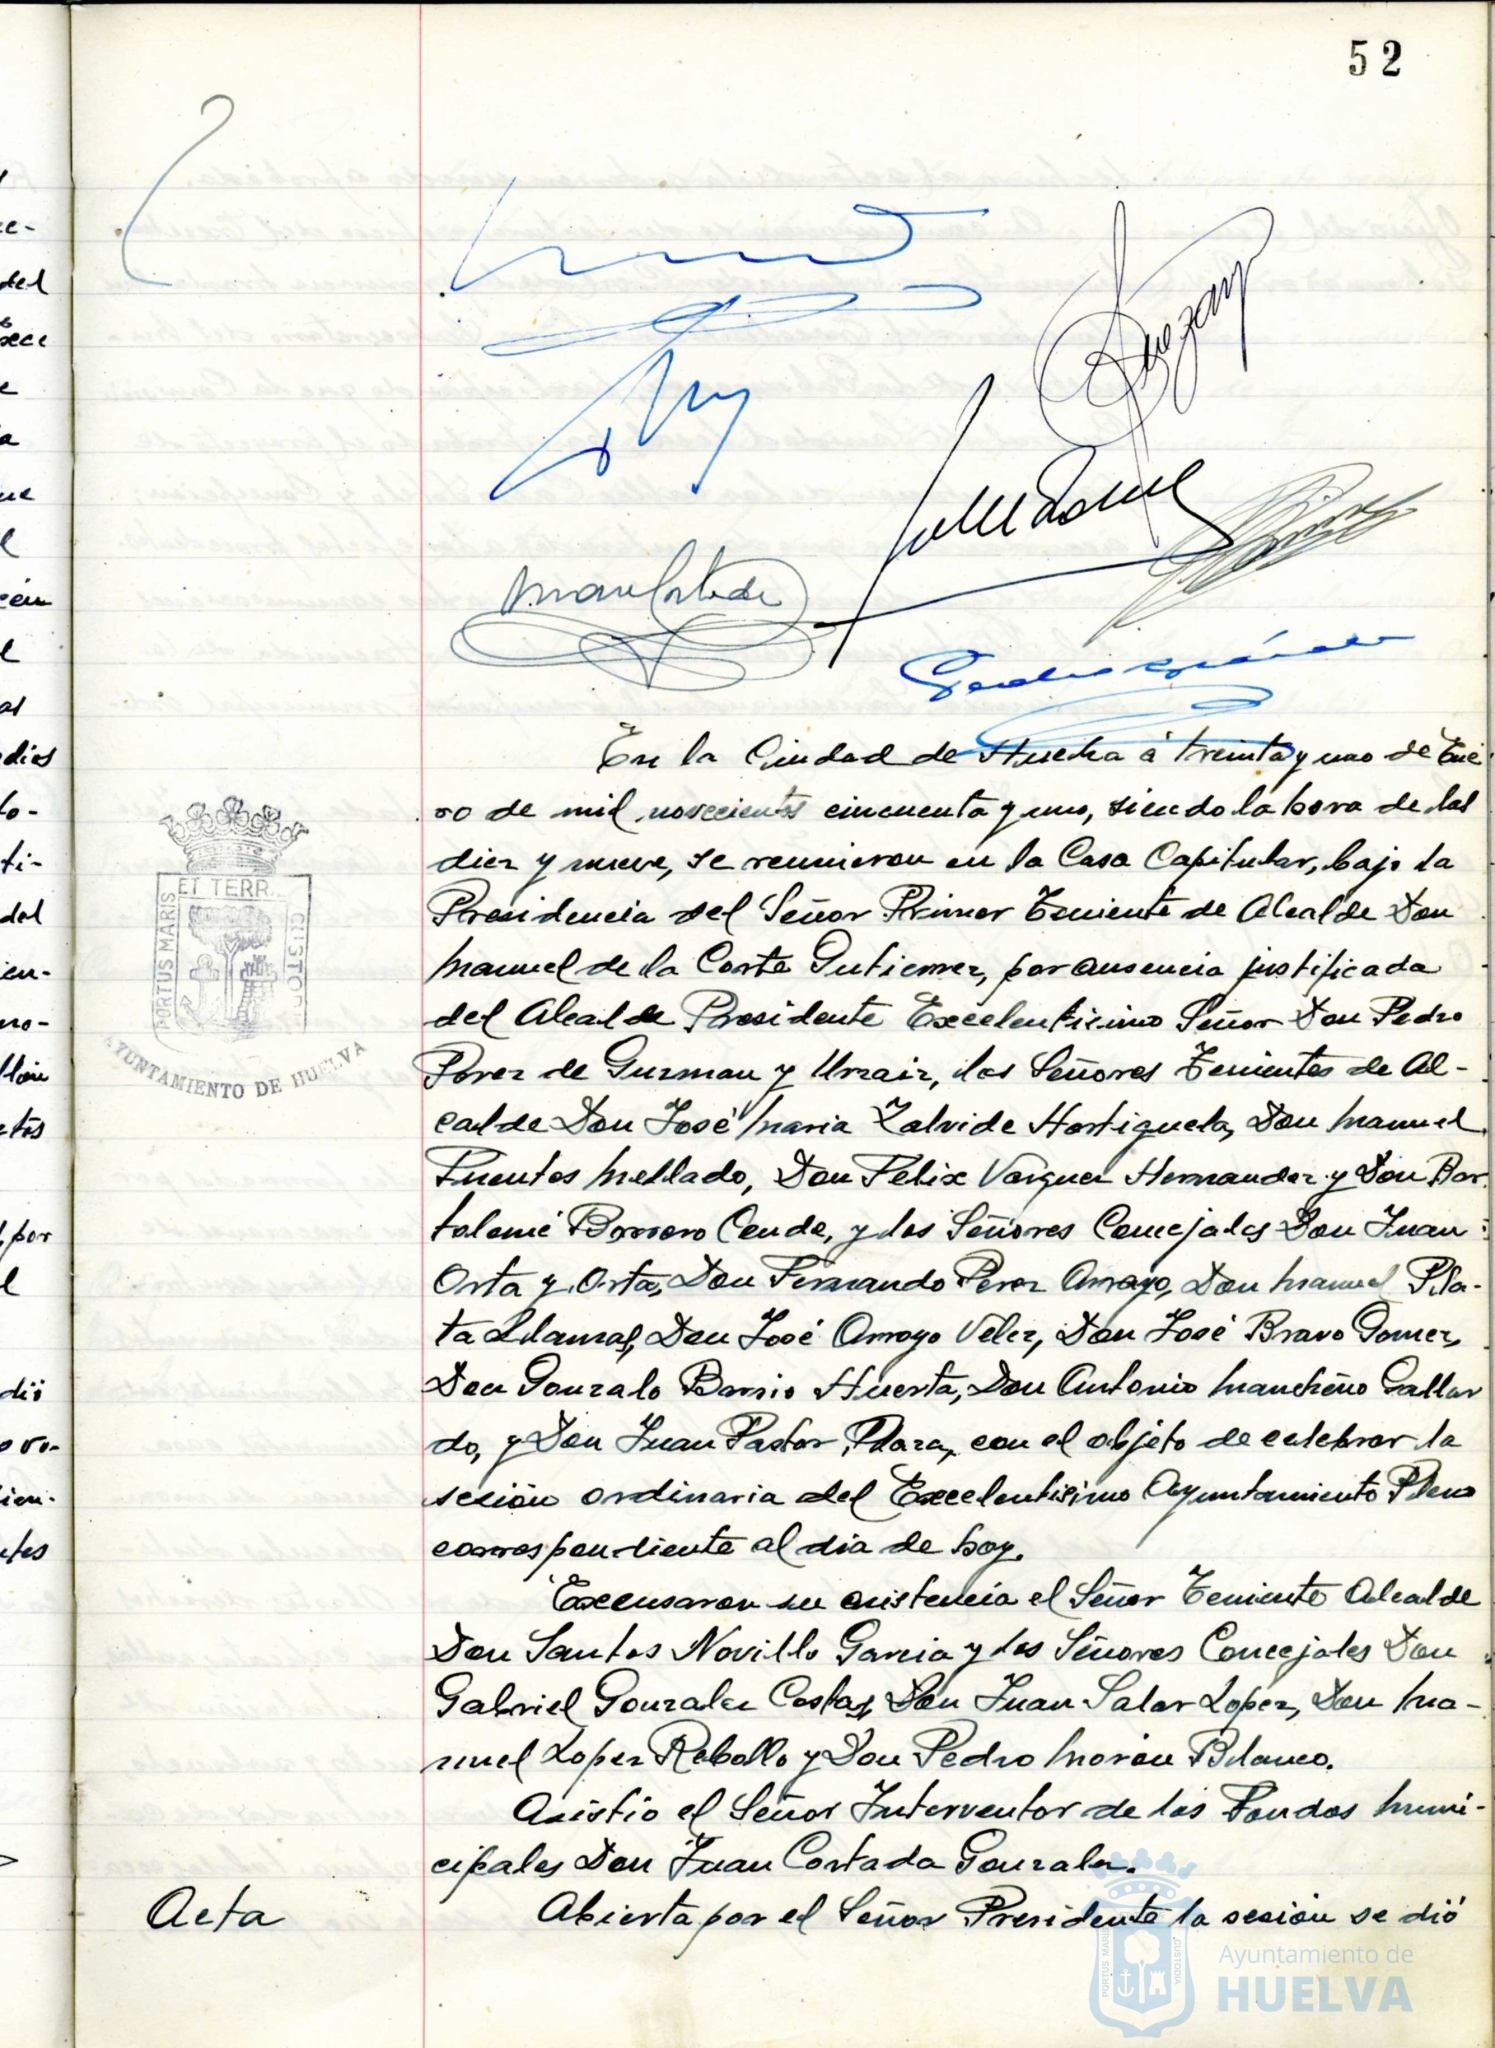 52
En la Ciudad de Huelva á treinta y uno de Ene
ro de mil novecientos cincuenta y uno, siendo la hora de las
diez y nueve, se reunieron en la Casa Capitular, bajo la
Presidencia del Señor Primer Teniente de Alcalde Don
Manuel de la Corte Gutierrez, por ausencia justificada
del Alcalde Presidente Excelentisimo Señor Don Pedro
Perez de Guzman y Urzaiz, los Señores Tenientes de Al-
calde Don José Maria Zalvide Hortiguela, Don Manuel
Fuentes Mellado, Don Felix Vazquez Hernandez y Don Bar
tolomé Borrero Conde, y los Señores Concejales Don Juan
Orta y Orta, Don Fernando Perez Arroyo, Don Manuel Pla-
ta Llamas, Don José Arroyo Velez, Don José Bravo Gomez,
Don Gonzalo Barrio Huerta, Don Antonio Mancheño Gallar
do, y Don Juan Pastor Plaza, con el objeto de celebrar la
sesión ordinaria del Excelentisimo Ayuntamiento Pleno
correspondiente al dia de hoy.
Excusaron su asistencia el Señor Teniente Alcalde
Don Santos Novillo Garcia y los Señores Concejales Don
Gabriel Gonzalez Costas, Don Juan Salas Lopez, Don Ma-
nuel Lopez Rebollo y Don Pedro Morón Blanco.
Asistio el Señor Interventor de los Fondos Muni-
cipales Don Juan Cortada Gonzalez.
Acta
Abierta por el Señor Presidente la sesión se dió
PORTUS MARIS
ET TERR.
CUSTOD
AYUNTAMIENTO DE HUELVA
PORTUS MARIS
CUSTODIA
Ayuntamiento de
HUELVA